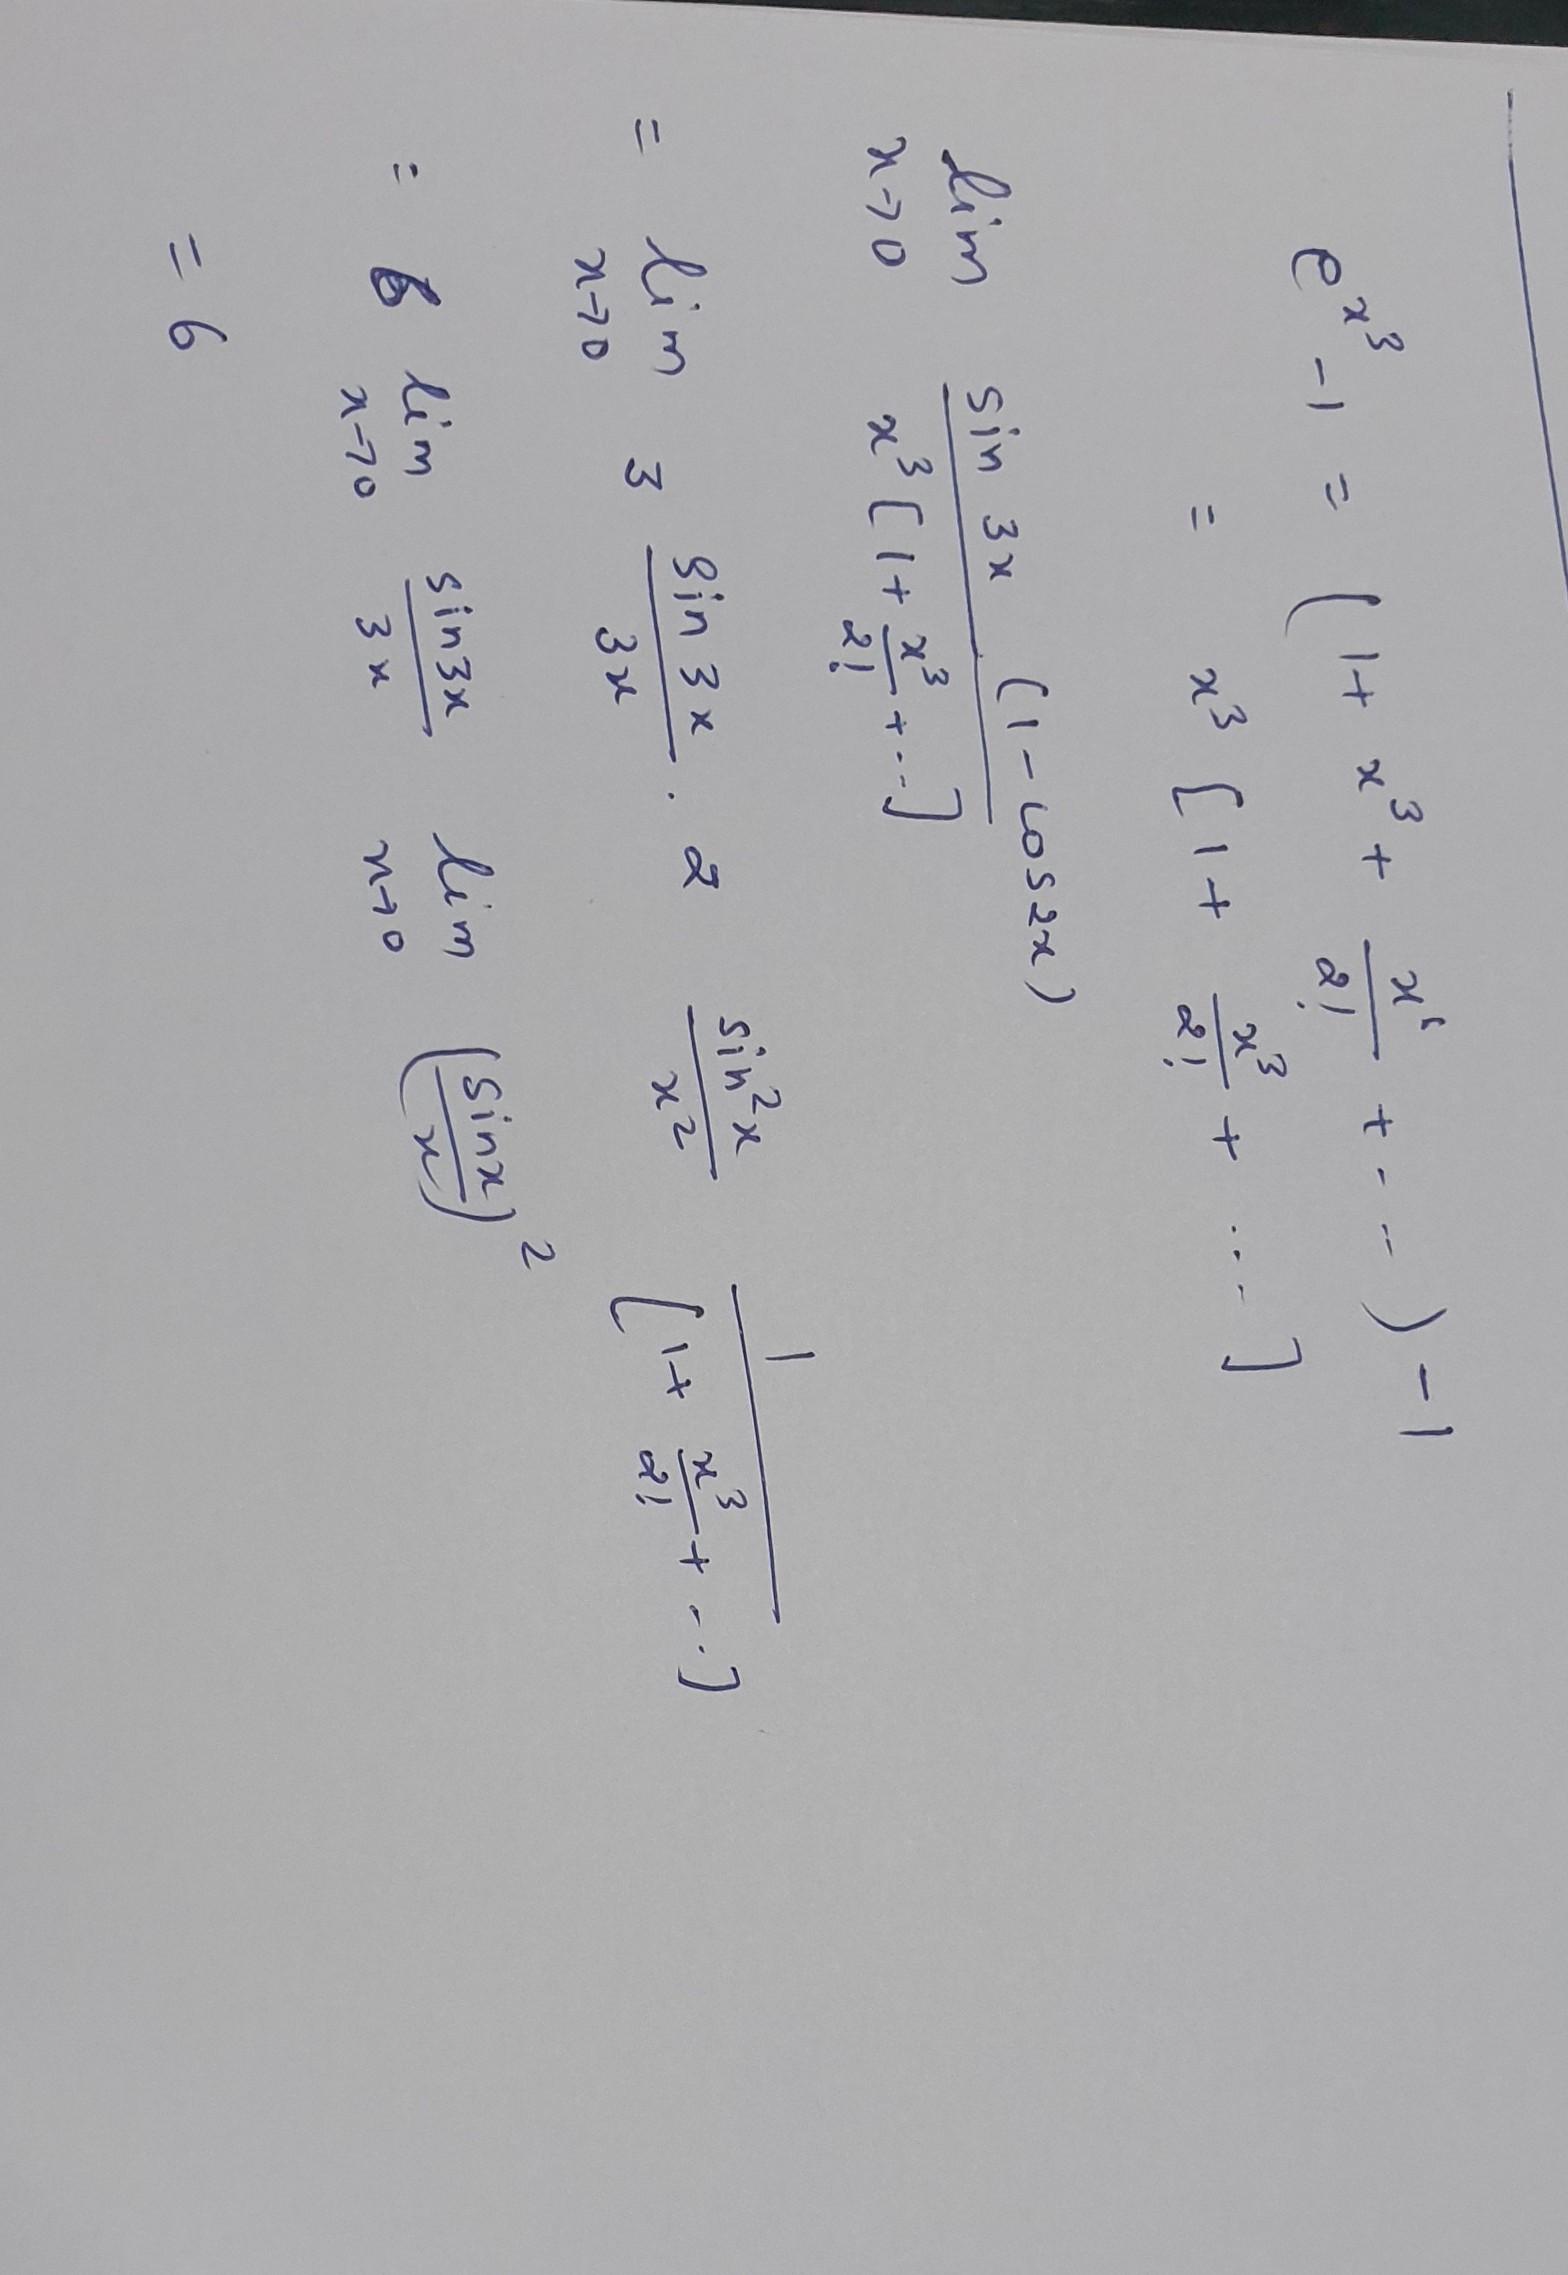 e^{x^3} - 1 = (1 + x^3 + \frac{x^6}{2!} + ...) - 1
= x^3 [1 + \frac{x^3}{2!} + ...]
\lim_{x→0} \frac{\sin 3x (1 - \cos 2x)}{x^3 [1 + \frac{x^3}{2!} + ...]}
= \lim_{x→0} 3 \frac{\sin 3x}{3x} . 2 \frac{\sin^2 x}{x^2} \frac{1}{[1 + \frac{x^3}{2!} + ...]}
= 6 \lim_{x→0} \frac{\sin 3x}{3x} \lim_{x→0} (\frac{\sin x}{x})^2
= 6